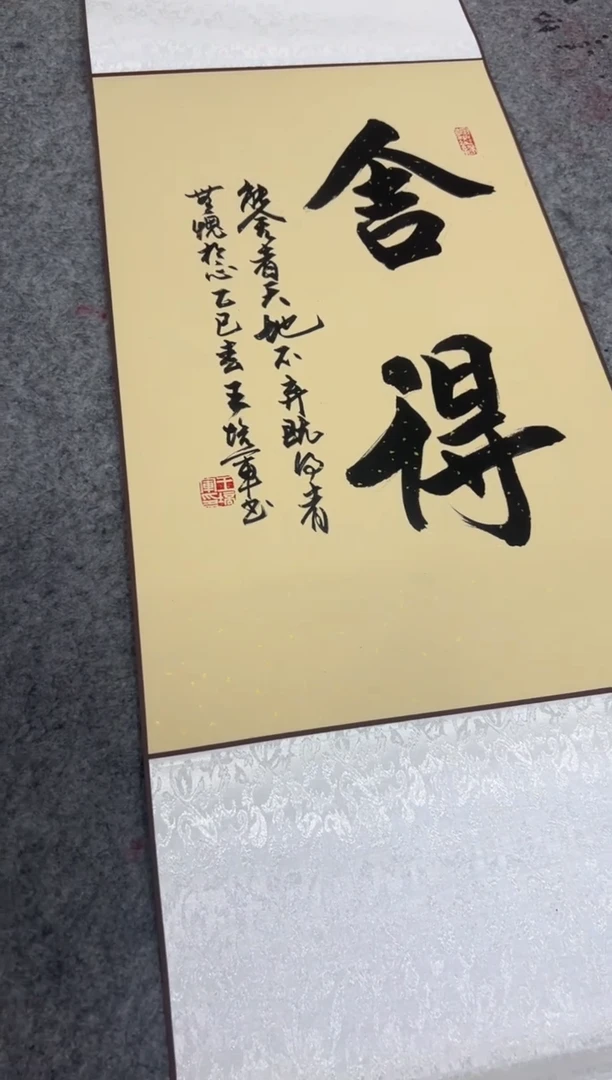 舍得
能舍者天地不弃既得者
無愧於心乙巳春王培軍书